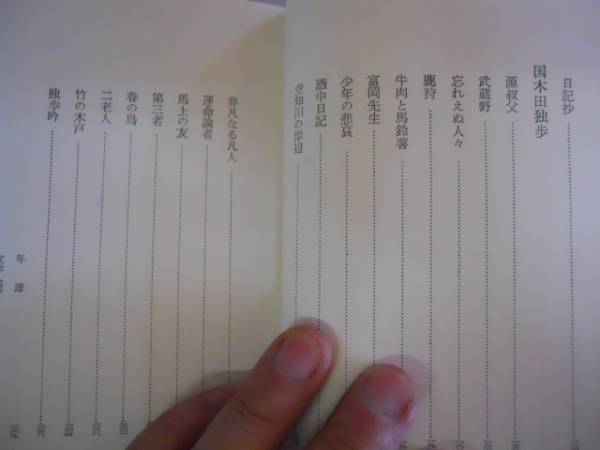 日記抄
国木田独歩
源叔父
武蔵野
忘れえぬ人々
鹿狩
牛肉と馬鈴薯
富岡先生
少年の悲哀
酒中日記
空知川の岸辺
非凡なる凡人
運命論者
馬上の友
第三者
春の鳥
二老人
竹の木戸
独歩吟
年譜